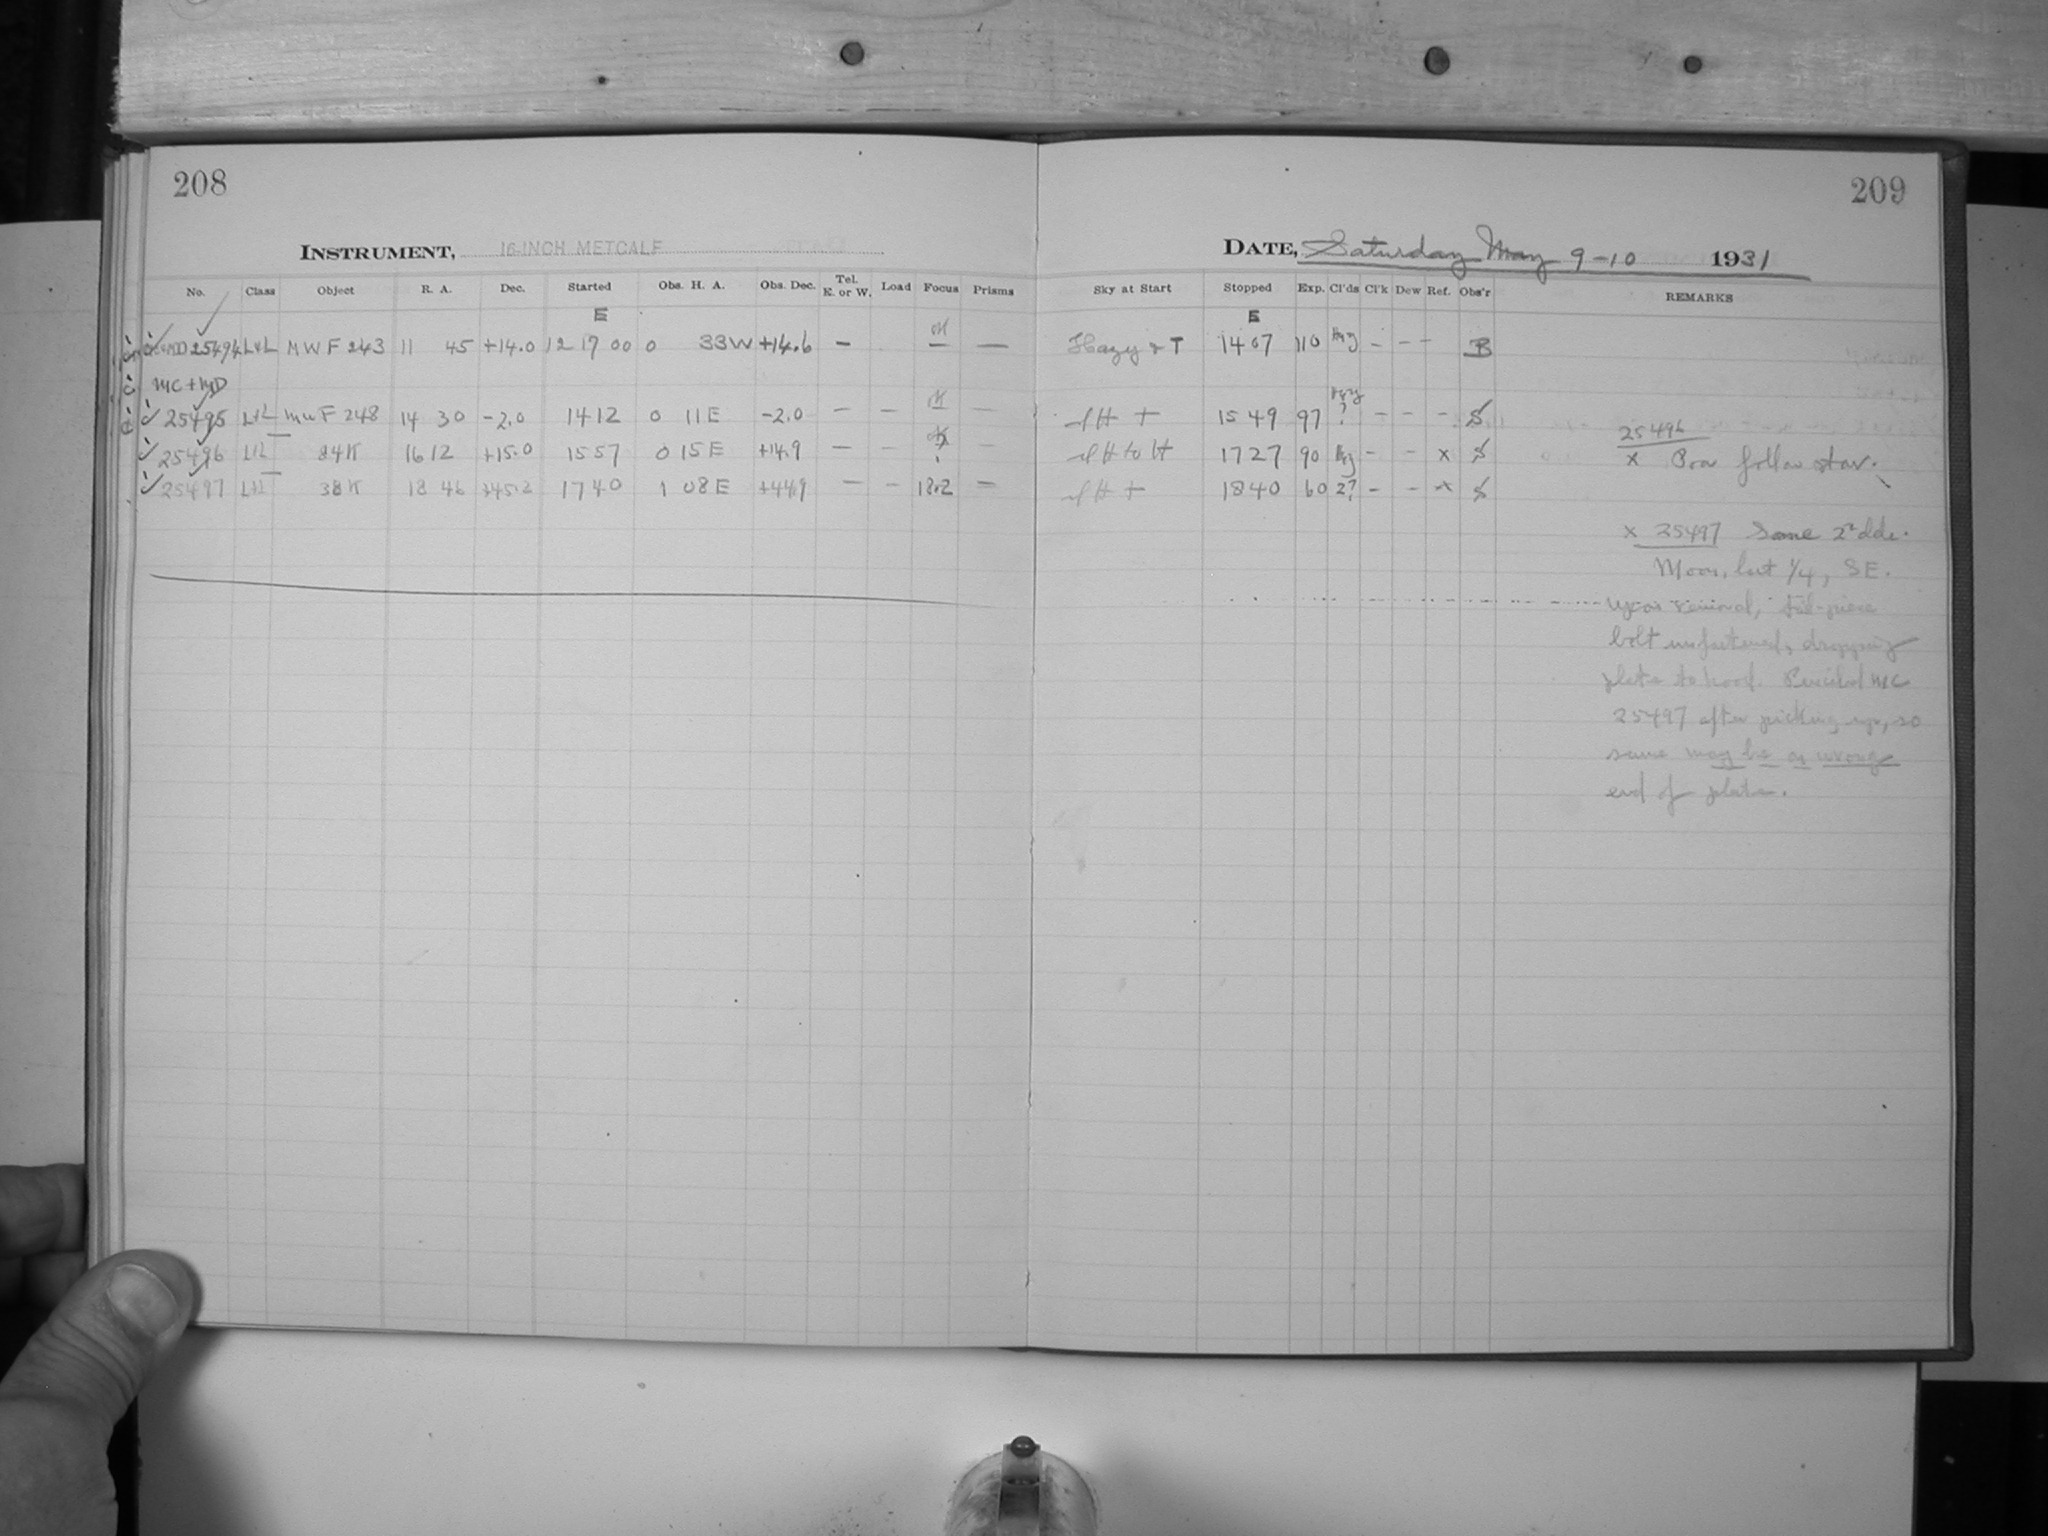 208
209
INSTRUMENT, 16-INCH METCALF
DATE, Saturday May 9-10 1931
No. Class Object R. A. Dec. Started Obs. H. A. Obs. Dec. Tel. E. or W. Load Focus Prisms Sky at Start Stopped Exp. Cl'ds Cl'k Dew Ref. Obs'r REMARKS
E E
25494 LxL MWF 243 11 45 +14.0 12 17 00 0 33W +14.6 — — — Hazy & T 1407 110 Hzy - - - B
MC+MD
25495 LxL MWF 248 14 30 -2.0 1412 0 11E -2.0 — — — — 1549 97 ? - - - S
25496 LxL 34K 16 12 +15.0 1557 0 15E +14.9 — — — 1727 90 - - x S
25496
x Poor follow star.
25497 LxL 38K 18 46 +45.2 1740 1 08E +44.9 — — 18.2 — 1840 60 2? - - x S
x 25497 Same 2nd dde.
Moon, last 1/4, SE.
Upon removal, tail-piece
bolt unfastened, dropping
plate to hood. Penciled MC
25497 after picking up, so
same may be on wrong
end of plate.